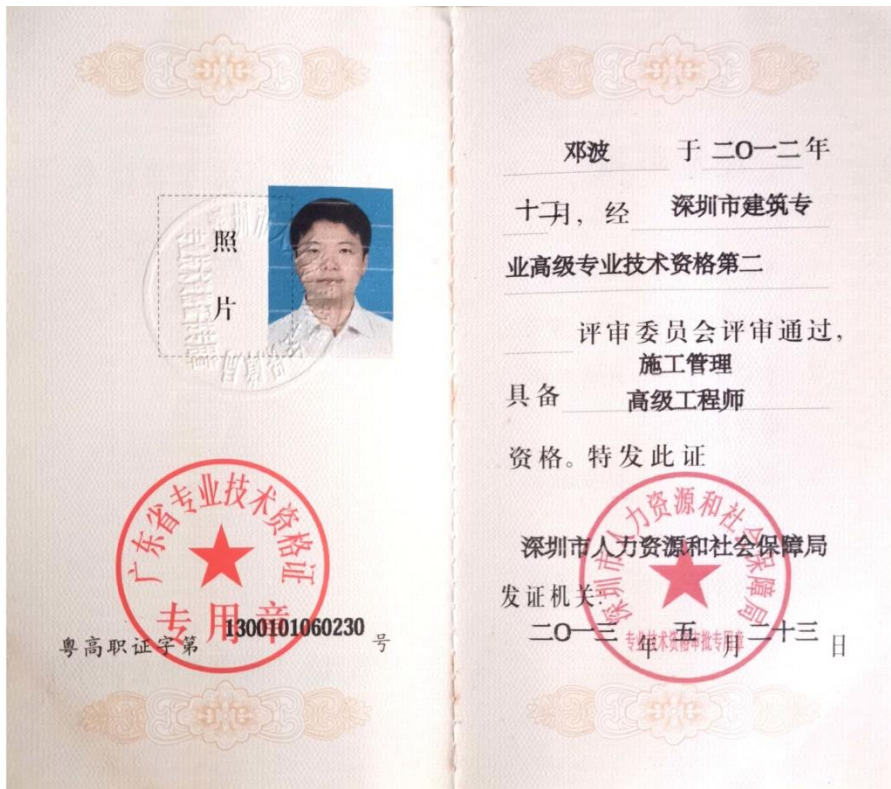 照
片
广东省专业技术资格证
专用章
粤高职证字第 1300101060230 号
邓波 于 二〇一二年
十二月，经 深圳市建筑专
业高级专业技术资格第二
评审委员会评审通过，
施工管理
具备 高级工程师
资格。特发此证
深圳市人力资源和社会保障局
深圳市人力资源和社会保障局
发证机关：
专业技术资格审批专用章
二〇一三年 五 月 二十三 日